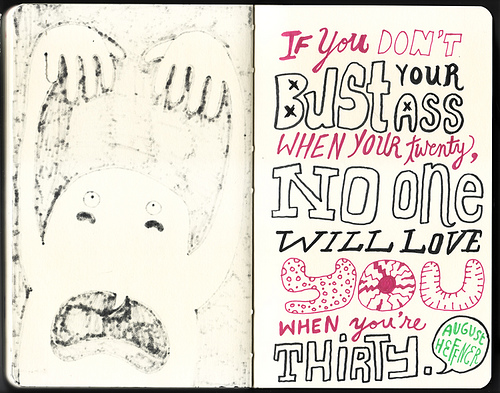 IF You DON'T
BUSt YOUR
ASS
WHEN YOUR twenty,
NO One
WILL LOVE
YOU
WHEN you're
THiRTY.
AUGUST
HEFFNER